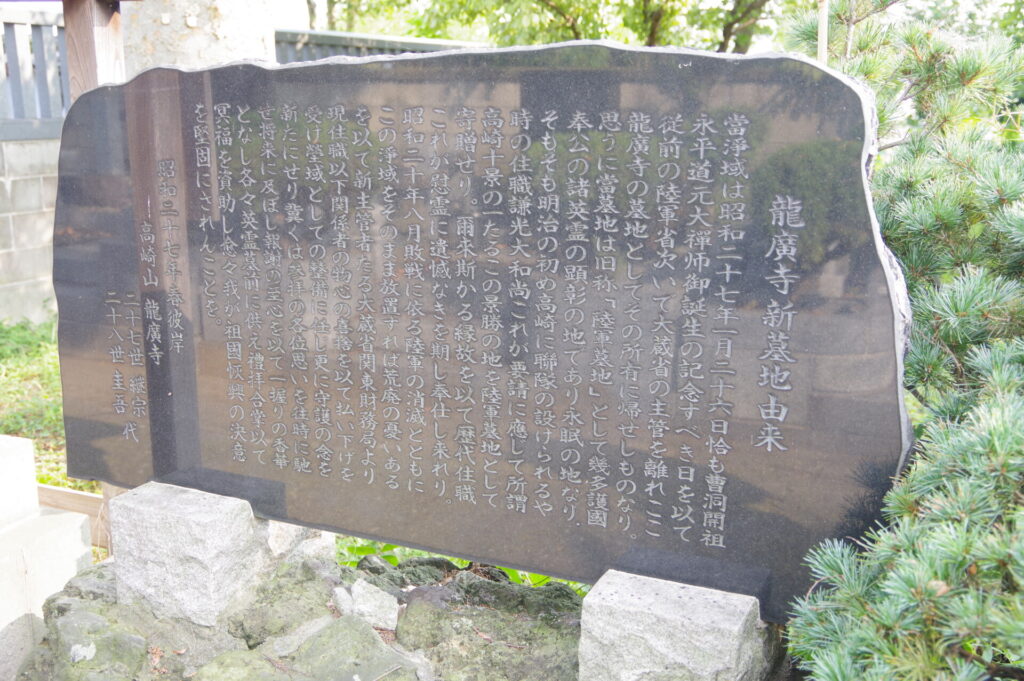 龍廣寺新墓地由来
當淨域は昭和二十七年一月二十六日恰も曹洞開祖
永平道元大禅师御誕生の記念すべき日を以て
従前の陸軍省次いで大蔵省の主管を離れここ
龍廣寺の墓地としてその所有に帰せしものなり。
思うに當墓地は旧称「陸軍墓地」として幾多護國
奉公の諸英霊の顕彰の地であり永眠の地なり.
そもそも明治の初め高崎に聯隊の設けられるや
時の住職謙光大和尚これが要請に應じて所謂
高崎十景の一たるこの景勝の地を陸軍墓地として
寄贈せり。爾来斯かる縁故を以て歴代住職
これが慰霊に遺憾なきを期し奉仕し来れり。
昭和二十年八月敗戦に依る陸軍の消滅とともに
この浄域をそのまま放置すれば荒廃の憂いある
を以て新主管者たる大蔵省関東財務局より
現住職以下関係者の物心の喜捨を以て払い下げを
受け塋域としての整備に全し更に守護の念を
新たにせり冀くは参拝の各位思いを往時に馳
世将来に及ぼし報謝の至心を以て一握りの香華
となし各々英霊墓前に供え禮拝合掌以て
冥福を資助し念々我が祖國恢興の決意
を堅固にされんことを。
昭和二十七年春彼岸
高崎山 龍廣寺
二十七世継宗
二十八世圭吾 代